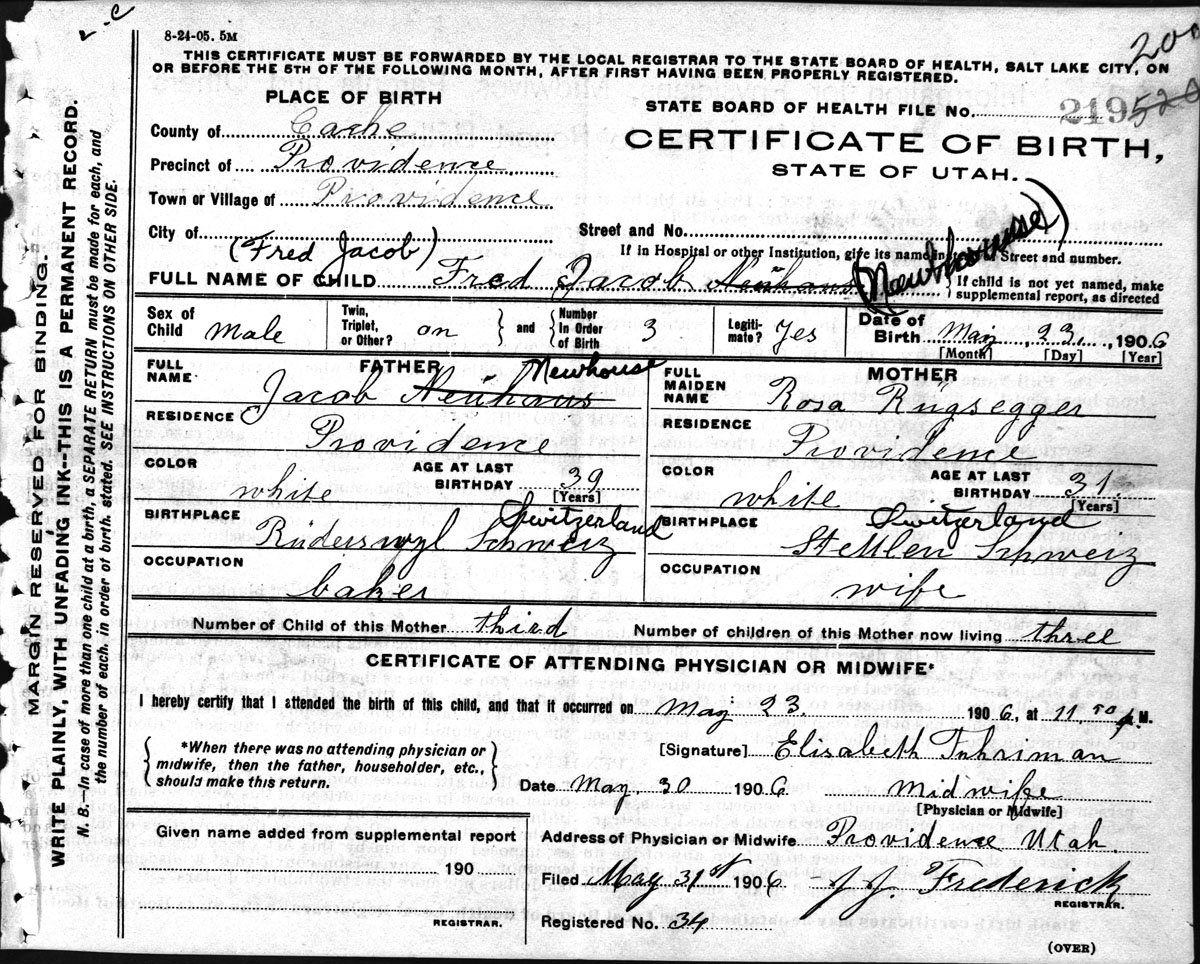 8-24-05. 5M
200
THIS CERTIFICATE MUST BE FORWARDED BY THE LOCAL REGISTRAR TO THE STATE BOARD OF HEALTH, SALT LAKE CITY, ON
OR BEFORE THE 5TH OF THE FOLLOWING MONTH, AFTER FIRST HAVING BEEN PROPERLY REGISTERED.
PLACE OF BIRTH
STATE BOARD OF HEALTH FILE No. 219 520
County of Cache
CERTIFICATE OF BIRTH,
Precinct of Providence
STATE OF UTAH.
Town or Village of Providence
City of
Street and No.
(Fred Jacob)
If in Hospital or other Institution, give its name instead of Street and number.
FULL NAME OF CHILD Fred Jacob Neuhaus (Newhouse)
If child is not yet named, make supplemental report, as directed
Sex of Child Male
Twin, Triplet, or Other? on and Number In Order of Birth 3
Legitimate? Yes
Date of Birth May 23, 1906
[Month] [Day] [Year]
FATHER
FULL NAME Jacob Neuhaus Newhouse
MOTHER
FULL MAIDEN NAME Rosa Rügsegger
RESIDENCE Providence
RESIDENCE Providence
COLOR white AGE AT LAST BIRTHDAY 39 [Years]
COLOR white AGE AT LAST BIRTHDAY 31 [Years]
Switzerland
Switzerland
BIRTHPLACE Rüderswyl Schweiz
BIRTHPLACE Schweiz
OCCUPATION baker
OCCUPATION wife
Number of Child of this Mother third Number of children of this Mother now living three
CERTIFICATE OF ATTENDING PHYSICIAN OR MIDWIFE*
I hereby certify that I attended the birth of this child, and that it occurred on May 23 1906, at 11.50 M.
*When there was no attending physician or
midwife, then the father, householder, etc.,
should make this return.
[Signature] Elisabeth
Date May 30 1906 Midwife
[Physician or Midwife]
Given name added from supplemental report
190
REGISTRAR.
Address of Physician or Midwife Providence Utah
Filed May 31st 1906 J J Frederick
REGISTRAR.
Registered No. 34
(OVER)
MARGIN RESERVED FOR BINDING.
WRITE PLAINLY, WITH UNFADING INK--THIS IS A PERMANENT RECORD.
N. B. In case of more than one child at a birth, a SEPARATE RETURN must be made for each, and
the number of each, in order of birth, stated. SEE INSTRUCTIONS ON OTHER SIDE.